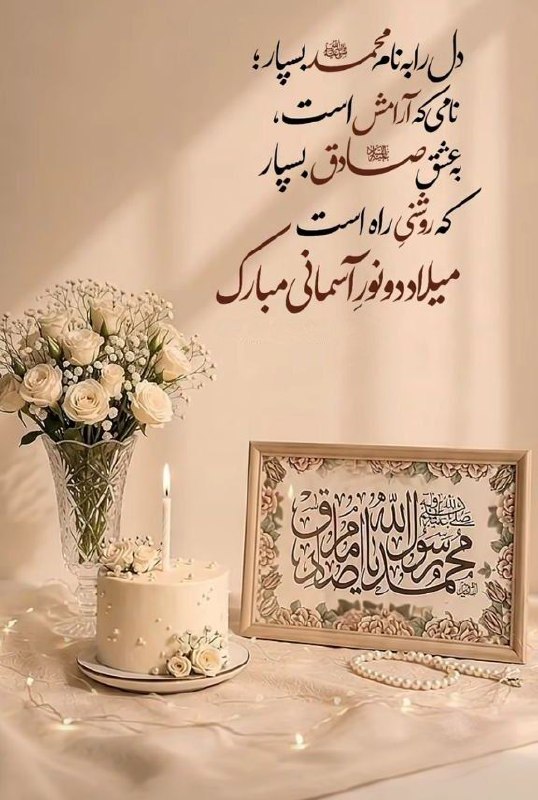 دل را به نام محمد ﷺ بسپار؛
نامی که آرامش است،
به عشق صادق علیه‌السلام بسپار
که روشنیِ راه است
میلاد دو نورِ آسمانی مبارک
محمد رسول الله
یا امام صادق